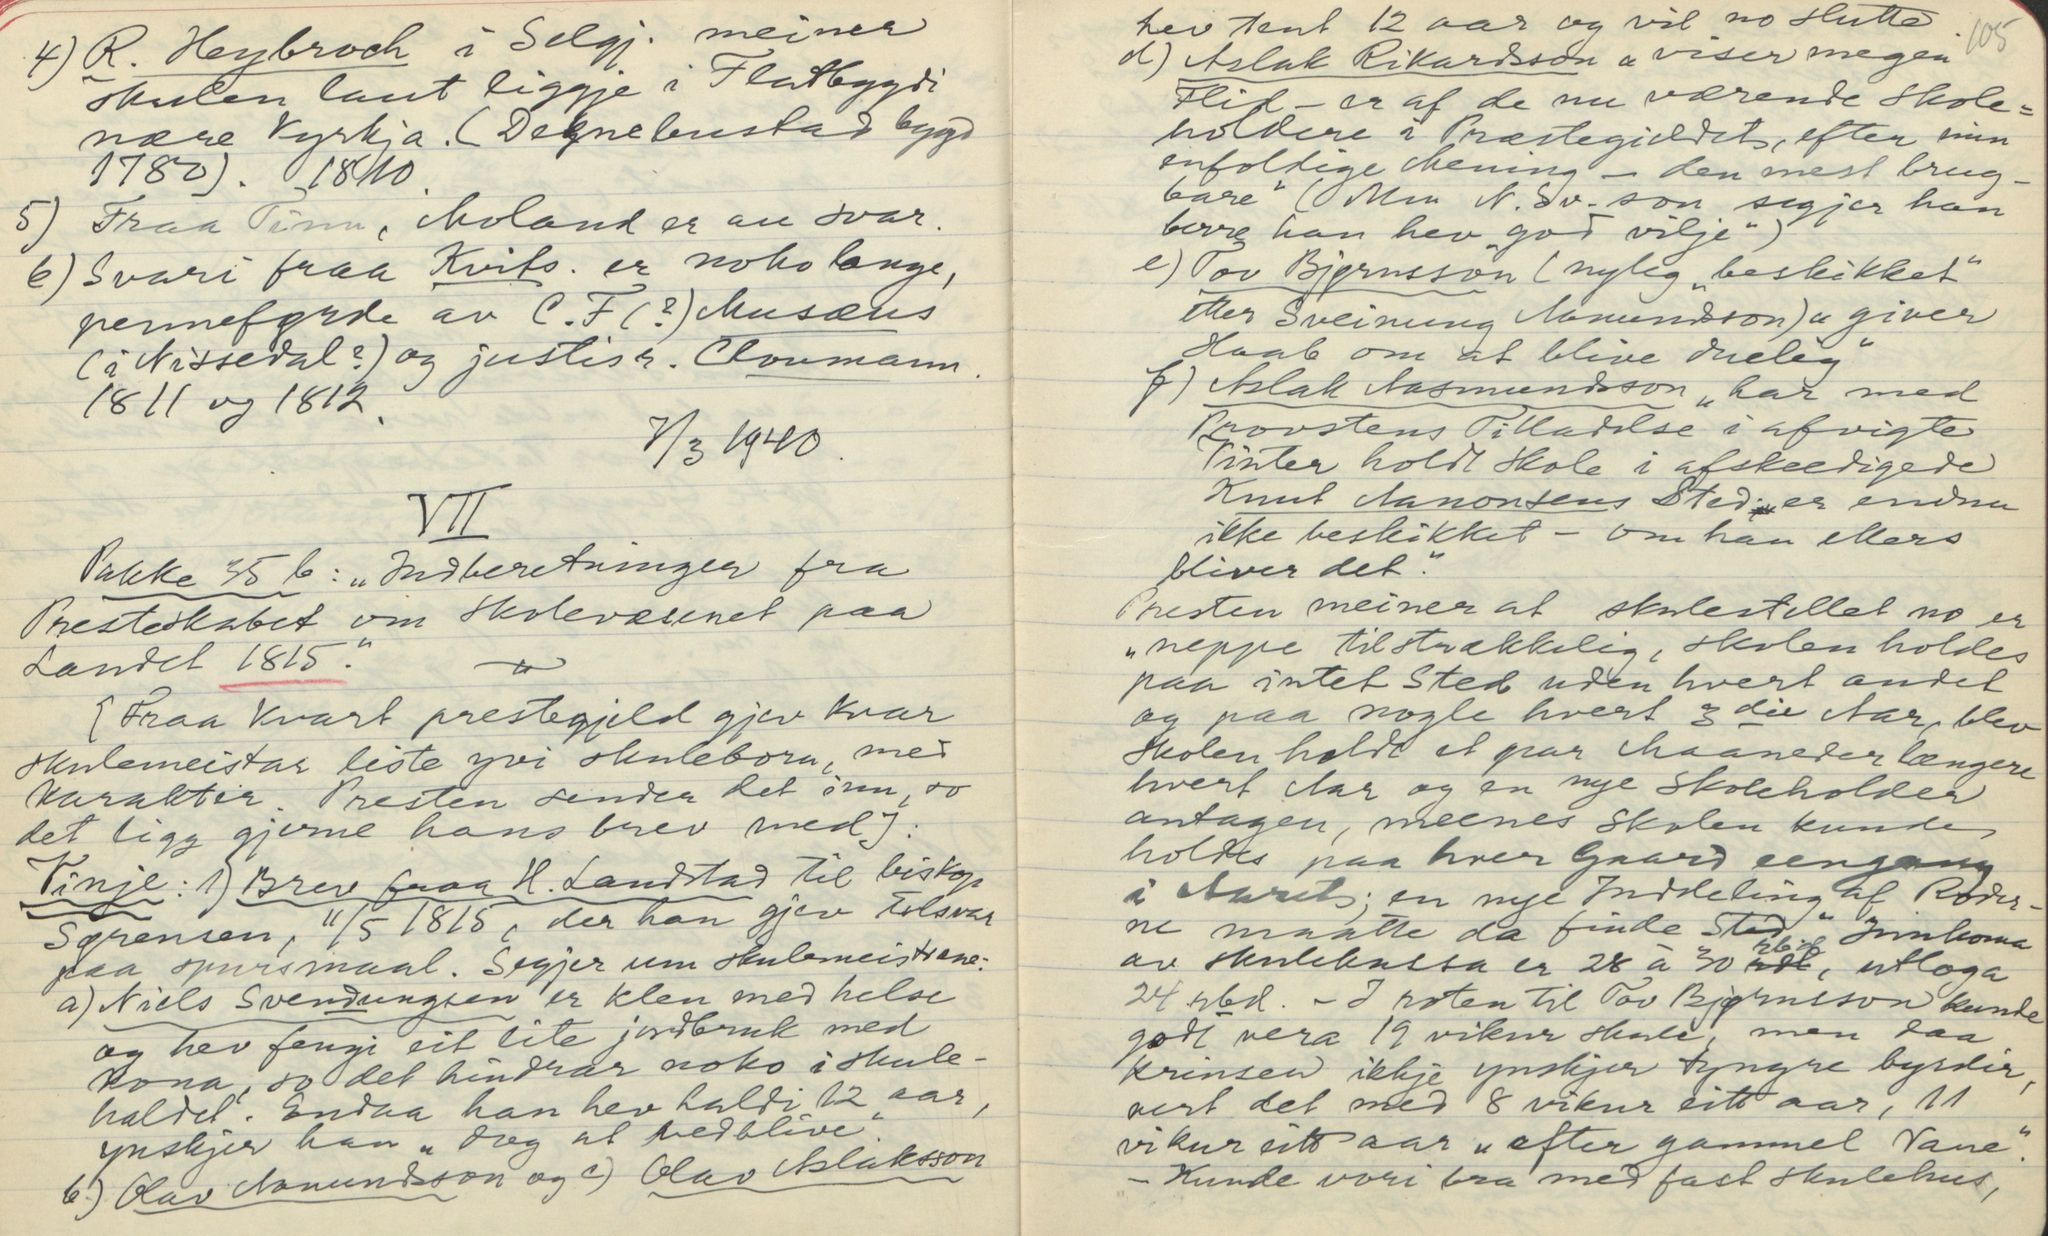 4) R. Heybroch i Selgj. meiner
skulen laut liggje i Flatbygdi
nære Kyrkja. (Degnebustad bygd
1780). 1810.
5) Fraa Tinn, Moland er au svar.
6) Svari fraa Kvits. er noko lange,
penneførde av C. F (?) Musæus
(i Nissedal?) og justisr. Cloumann.
1811 og 1812.
7/3 1940.
VII
Pakke 35 b: „Indberetninger fra
Presteskabet om Skolevæsenet paa
Landet 1815."
[Fraa kvart prestegjeld gjev kvar
skulemeistar liste yvi skuleborn, med
karakter. Presten sender det inn, so
det ligg gjerne hans brev med]:
Vinje: 1) Brev fraa H. Landstad til biskop
Sørensen, 11/5 1815, der han gjev tilsvar
paa spursmaal. Segjer um skulemeistrane:
a) Niels Svendungsen er klen med helse
og hev fengi eit lite jordbruk med
kona, so det hindrar noko i skule-
haldet. Endaa han hev haldi 12 aar,
ynskjer han „dog at vedblive".
b) Olav Aamundsson og c) Olav Aslaksson
105
hev tent 12 aar og vil no slutte
d) Aslak Rikardsson „viser megen
Flid – er af de nu værende Skole=
holdere i Præstegieldet, efter min
enfoldige Mening – den mest brug-
bare" (Um N. Sv.-son segjer han
berre han hev „god vilje")
e) Tov Bjørnsson (nyleg „beskikket"
etter Sveinung Aamundsson) „giver
Haab om at blive duelig"
f) Aslak Aasmundsson „har med
Provstens Tilladelse i afvigte
Vinter holdt Skole i afskeedigede
Knut Aanonsens Sted; er endnu
ikke beskikket – om han ellers
bliver det".
Presten meiner at skulestellet no er
„neppe tilstrækkelig, Skolen holdes
paa intet Sted uden hvert andet
og paa nogle hvert 3die Aar, blev
Skolen holdt et par Maaneder længere
hvert Aar og en nye Skoleholder
antagen, meenes Skolen kunde
holdes paa hver Gaard eengang
i Aaret; en nye Inddeling af Roder-
ne maatte da finde Sted" Innkoma
av skulekassa er 28 à 30 rbd, utloga
24 rbd. – I roten til Tov Bjørnsson kunde
godt vera 19 vikur skule, men daa
krinsen ikkje ynskjer tyngre byrdir,
vert det med 8 vikur eitt aar, 11
vikur eitt aar „efter gammel Vane".
– Kunde vori bra med fast skulehus,